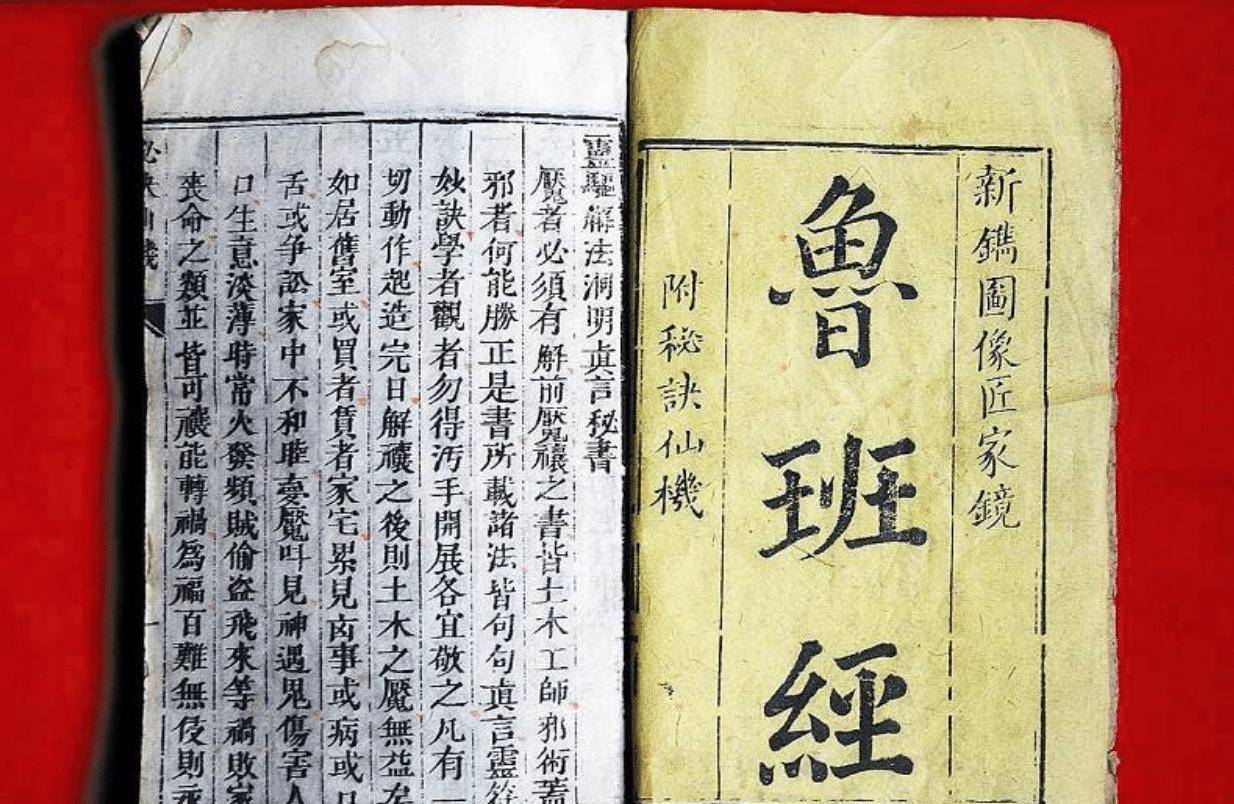 新鐫圖像匠家鏡
魯班經
附秘訣仙機
靈驅解法洞明真言秘書
魘者必須有解前魘禳之書皆土木工師邪術蓋
邪者何能勝正是書所載諸法皆句句真言靈符
妙訣學者觀者勿得汚手開展各宜敬之凡有一
切動作起造完日解禳之後則土木之魘無益矣
如居舊室或買者賃者家宅累見凶事或病或口
舌或爭訟家中不和睡夢魘叫見神遇鬼傷害人
口生意淡薄時常火發頻賊偷盗飛來等禍敗家
喪命之類並皆可禳能轉禍為福百難無侵則永